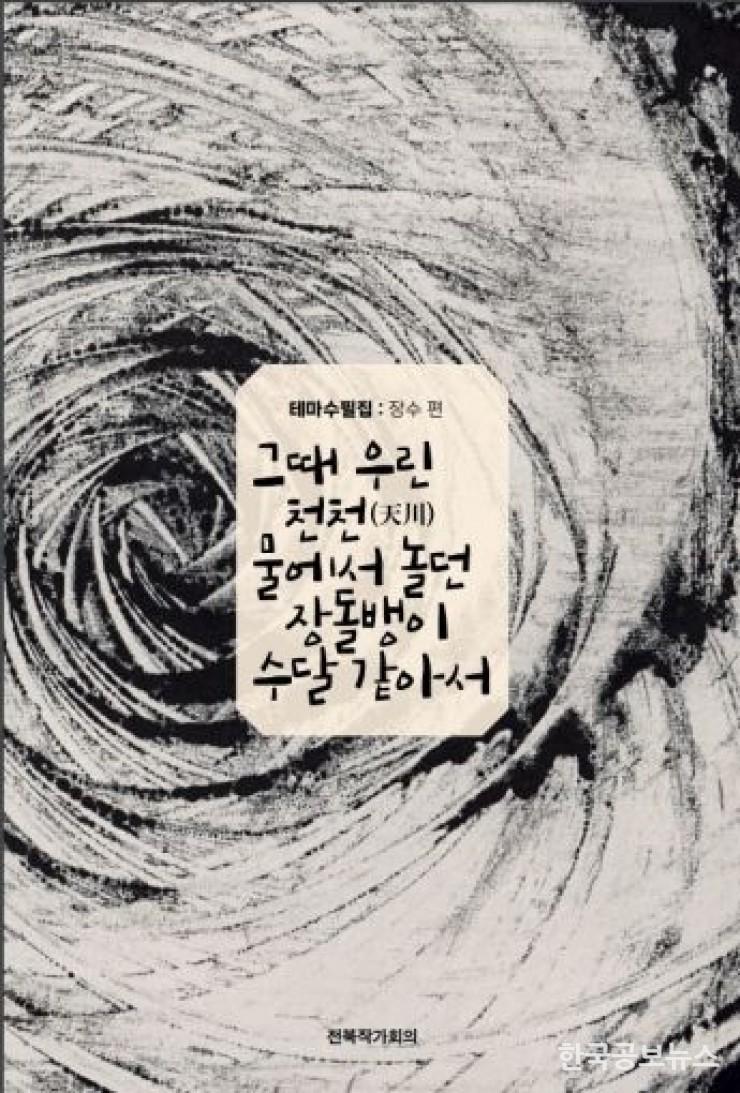 테마수필집 : 장수 편
그때 우린
천천(天川)
물에서 놀던
장돌뱅이
수달 같아서
전북작가회의
한국공보뉴스